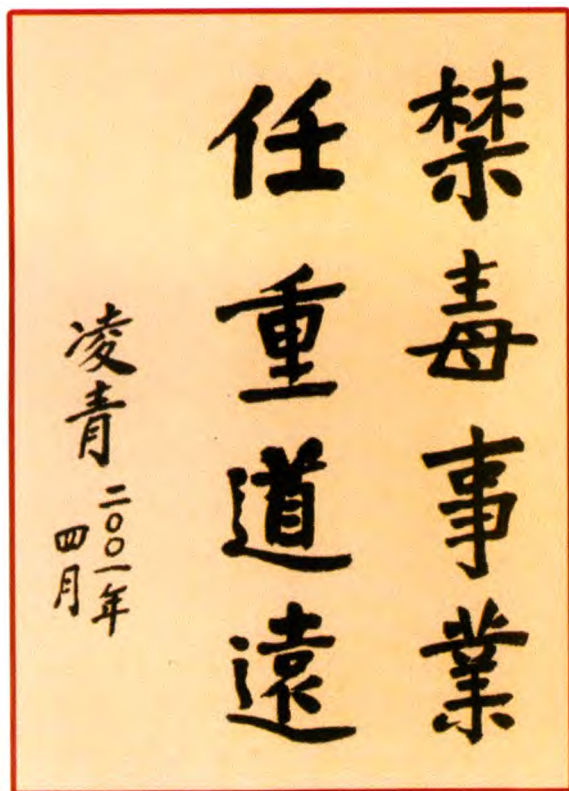 禁毒事業
任重道遠
凌青
二〇〇一年
四月